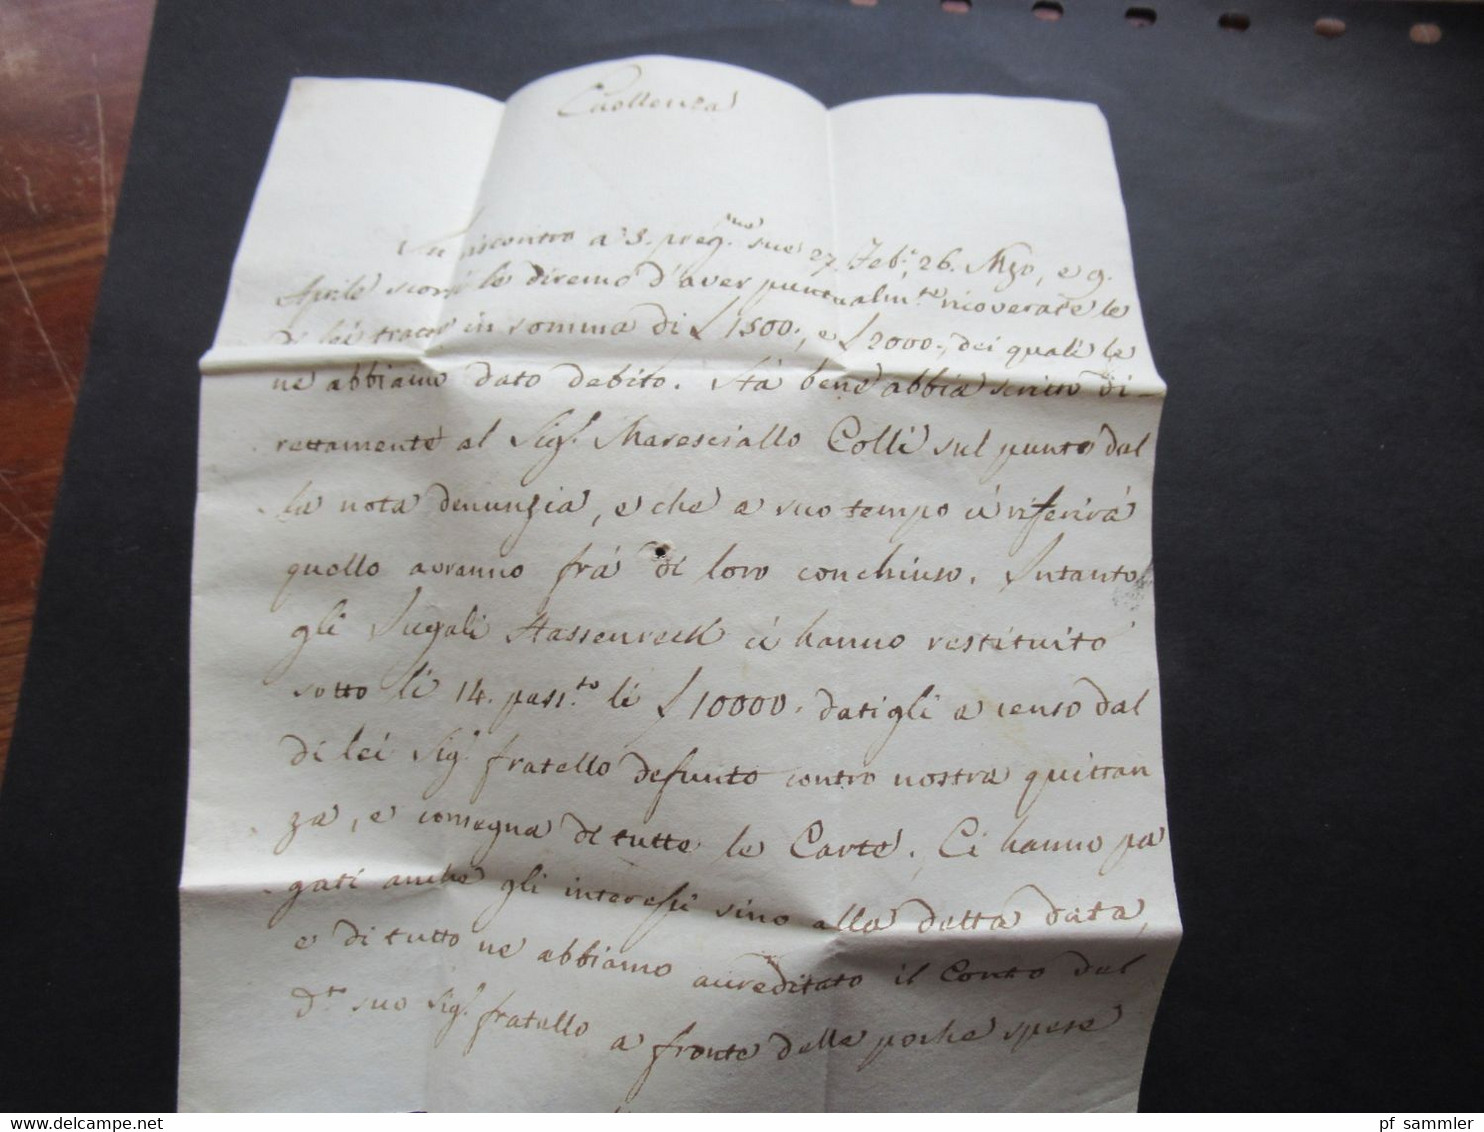 Eccellenza
In riscontro a 3. preg.me sue 27. Feb.o, 26. Mzo, e 9.
Aprile scorsi le diremo d'aver puntualm.te ricoverate le
di lei tratte in somma di £ 1500., e £ 2000., dei quali le
ne abbiamo dato debito. Stà bene abbia scritto di-
rettamente al Sig.r Maresciallo Colli sul punto del
la nota denunzia, e che a suo tempo ci riferirà
quello avranno frà di loro conchiuso. Intanto
gli Jugali Hassenreck ci hanno restituito
sotto li 14. pass.to li £ 10000. datigli a censo dal
di lei Sig.r fratello defunto contro nostra quittan
za, e consegna di tutte le Carte. Ci hanno pa
gati anche gli interessi sino alla detta data,
e di tutto ne abbiamo accreditato il Conto del
d.to suo Sig.r fratello a fronte delle poche spese
pf_sammler